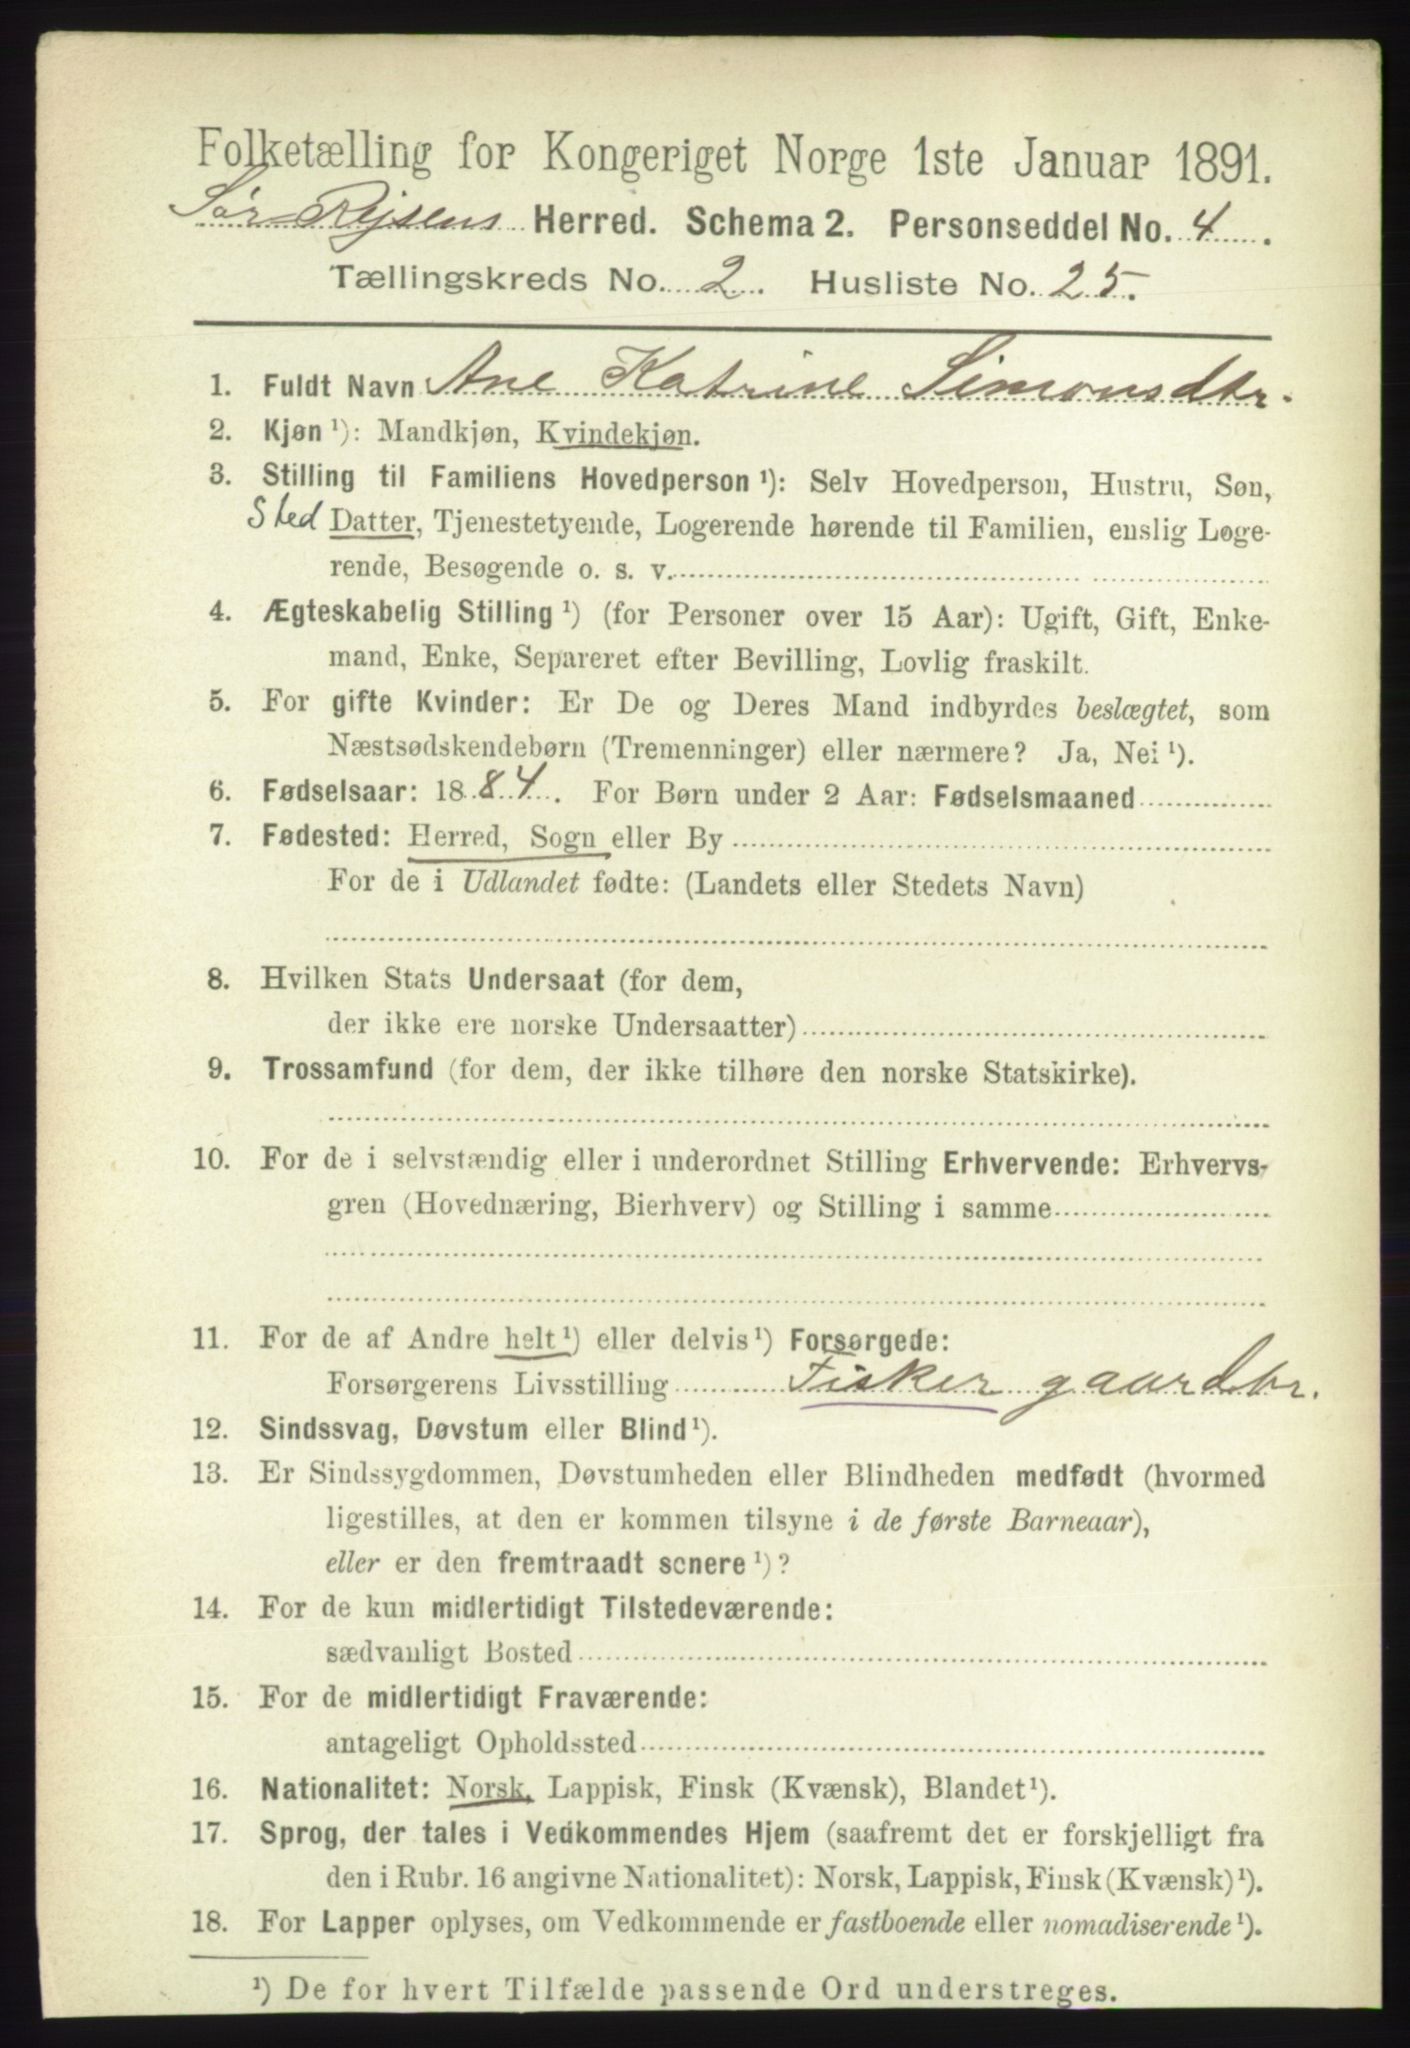 Folketælling for Kongeriget Norge 1ste Januar 1891.
Sør Rejsens Herred. Schema 2. Personseddel No. 4.
Tællingskreds No. 2. Husliste No. 25.
1. Fuldt Navn Ane Katrine Simonsdtr.
2. Kjøn ¹): Mandkjøn, Kvindekjøn.
3. Stilling til Familiens Hovedperson ¹): Selv Hovedperson, Hustru, Søn,
Sted Datter, Tjenestetyende, Logerende hørende til Familien, enslig Loge-
rende, Besøgende o. s. v.
4. Ægteskabelig Stilling ¹) (for Personer over 15 Aar): Ugift, Gift, Enke-
mand, Enke, Separeret efter Bevilling, Lovlig fraskilt.
5. For gifte Kvinder: Er De og Deres Mand indbyrdes beslægtet, som
Næstsødskendebørn (Tremenninger) eller nærmere? Ja, Nei ¹).
6. Fødselsaar: 1884. For Børn under 2 Aar: Fødselsmaaned
7. Fødested: Herred, Sogn eller By
For de i Udlandet fødte: (Landets eller Stedets Navn)
8. Hvilken Stats Undersaat (for dem,
der ikke ere norske Undersaatter)
9. Trossamfund (for dem, der ikke tilhøre den norske Statskirke).
10. For de i selvstændig eller i underordnet Stilling Erhvervende: Erhvervs-
gren (Hovednæring, Bierhverv) og Stilling i samme
11. For de af Andre helt ¹) eller delvis ¹) Forsørgede:
Forsørgerens Livsstilling Fisker gaardbr.
12. Sindssvag, Døvstum eller Blind ¹).
13. Er Sindssygdommen, Døvstumheden eller Blindheden medfødt (hvormed
ligestilles, at den er kommen tilsyne i de første Barneaar),
eller er den fremtraadt senere ¹)?
14. For de kun midlertidigt Tilstedeværende:
sædvanligt Bosted
15. For de midlertidigt Fraværende:
antageligt Opholdssted
16. Nationalitet: Norsk, Lappisk, Finsk (Kvænsk), Blandet ¹).
17. Sprog, der tales i Vedkommendes Hjem (saafremt det er forskjelligt fra
den i Rubr. 16 angivne Nationalitet): Norsk, Lappisk, Finsk (Kvænsk) ¹).
18. For Lapper oplyses, om Vedkommende er fastboende eller nomadiserende ¹).
¹) De for hvert Tilfælde passende Ord understreges.